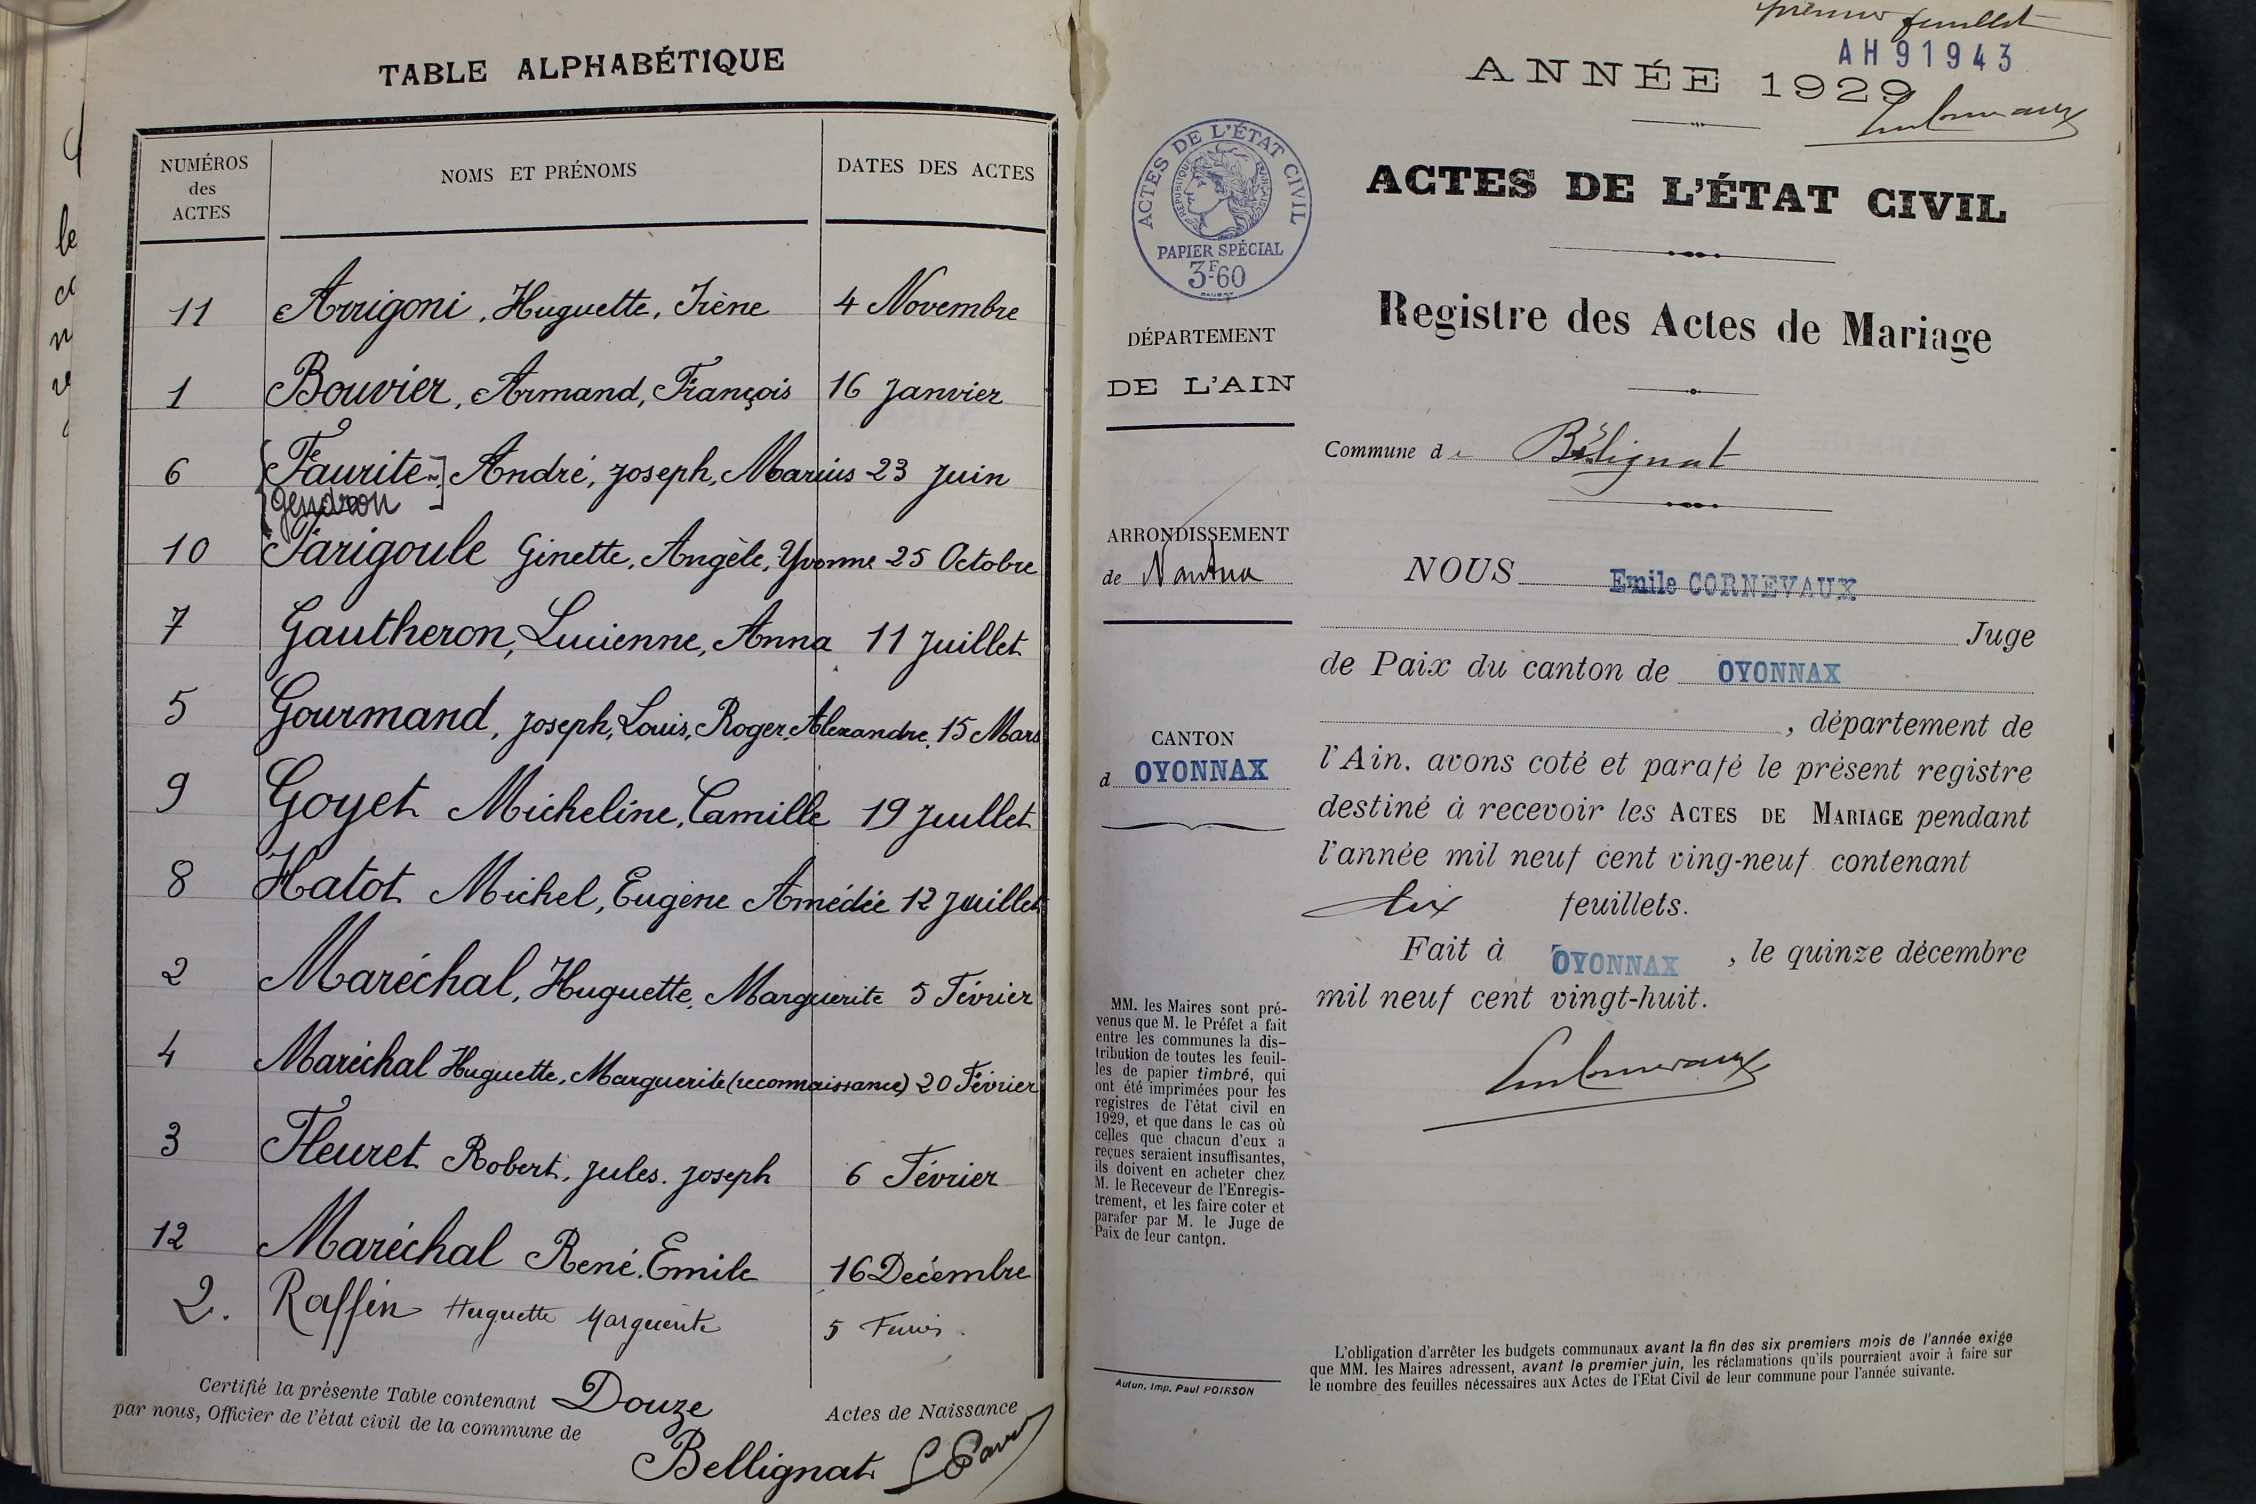 TABLE ALPHABÉTIQUE
NUMÉROS des ACTES
NOMS ET PRÉNOMS
DATES DES ACTES
11 Arrigoni, Huguette, Irène 4 Novembre
1 Bouvier, Armand, François 16 Janvier
6 Faurite André, Joseph, Marius 23 Juin
Gendron
10 Farigoule Ginette, Angèle, Yvonne 25 Octobre
7 Gautheron, Lucienne, Anna 11 Juillet
5 Gourmand, Joseph, Louis, Roger, Alexandre, 15 Mars
9 Goyet Micheline, Camille 19 Juillet
8 Hatot Michel, Eugène Amédée 12 Juillet
2 Maréchal, Huguette, Marguerite 5 Février
4 Maréchal Huguette, Marguerite (reconnaissance) 20 Février
3 Fleuret Robert, Jules. Joseph 6 Février
12 Maréchal René. Emile 16 Décembre
2. Raffin Huguette Marguerite 5
Certifié la présente Table contenant Douze Actes de Naissance
par nous, Officier de l'état civil de la commune de
Bellignat
le
premier feuillet
AH91943
ANNÉE 1929
ACTES DE L'ÉTAT CIVIL
RÉPUBLIQUE FRANÇAISE
PAPIER SPÉCIAL
3F.60
ACTES DE L'ÉTAT CIVIL
Registre des Actes de Mariage
DÉPARTEMENT
DE L'AIN
Commune de Bélignat
ARRONDISSEMENT
de Nantua
CANTON
d OYONNAX
NOUS Emile CORNEVAUX
Juge
de Paix du canton de OYONNAX
, département de
l'Ain, avons coté et parafé le présent registre
destiné à recevoir les ACTES DE MARIAGE pendant
l'année mil neuf cent ving-neuf contenant
dix feuillets.
Fait à OYONNAX, le quinze décembre
mil neuf cent vingt-huit.
MM. les Maires sont pré-
venus que M. le Préfet a fait
entre les communes la dis-
tribution de toutes les feuil-
les de papier timbré, qui
ont été imprimées pour les
registres de l'état civil en
1929, et que dans le cas où
celles que chacun d'eux a
reçues seraient insuffisantes,
ils doivent en acheter chez
M. le Receveur de l'Enregis-
trement, et les faire coter et
parafer par M. le Juge de
Paix de leur canton.
Autun, Imp. Paul POIRSON
L'obligation d'arrêter les budgets communaux avant la fin des six premiers mois de l'année exige
que MM. les Maires adressent, avant le premier juin, les réclamations qu'ils pourraient avoir à faire sur
le nombre des feuilles nécessaires aux Actes de l'Etat Civil de leur commune pour l'année suivante.